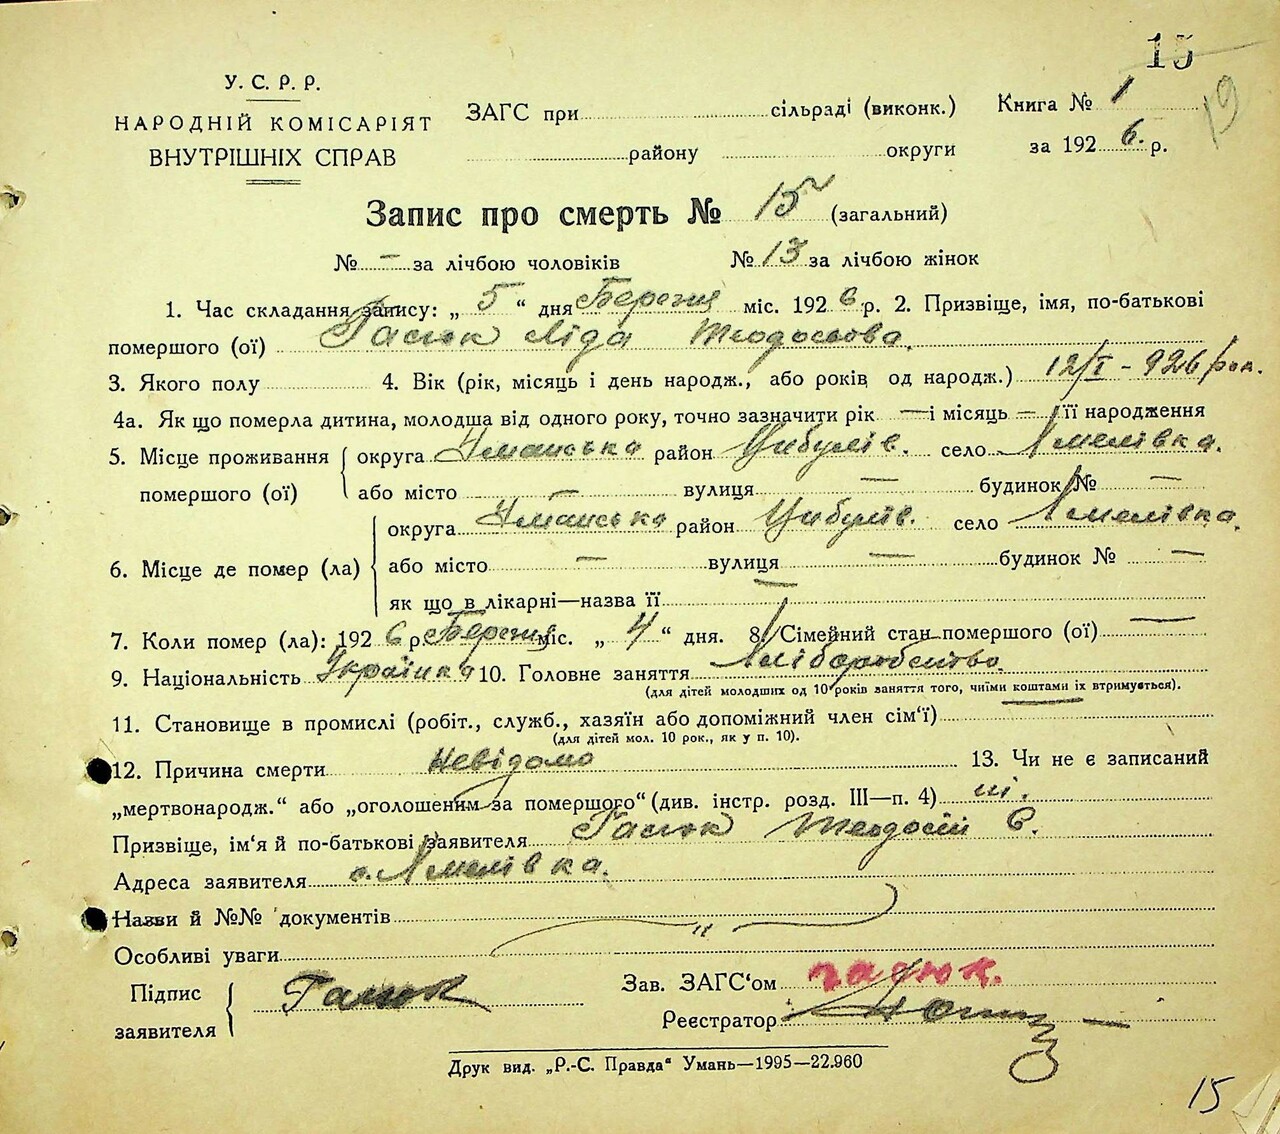 15
19
У. С. Р. Р.
НАРОДНІЙ КОМІСАРІЯТ
ВНУТРІШНІХ СПРАВ
ЗАГС при сільраді (виконк.)
району округи
Книга № 1
за 1926. р.
Запис про смерть № 15 (загальний)
№ – за лічбою чоловіків № 13 за лічбою жінок
1. Час складання запису: „ 5 “ дня Березня міс. 1926 р. 2. Призвіще, імя, по-батькові
помершого (ої) Гасюк Ліда Теодосьова.
3. Якого полу 4. Вік (рік, місяць і день народж., або років од народж.) 12/I – 926 рок.
4а. Як що померла дитина, молодша від одного року, точно зазначити рік — і місяць — її народження
5. Місце проживання помершого (ої) округа Уманська район Цибулів. село
або місто — вулиця — будинок № —
6. Місце де помер (ла) округа Уманська район Цибулів. село
або місто — вулиця — будинок № —
як що в лікарні—назва її —
7. Коли помер (ла): 1926 р. Березня міс. „ 4 “ дня. 8. Сімейний стан помершого (ої) —
9. Національність Українка 10. Головне заняття Хліборобство.
(для дітей молодших од 10 років заняття того, чиїми коштами їх втримується).
11. Становище в промислі (робіт., служб., хазяїн або допоміжний член сім‘ї)
(для дітей мол. 10 рок., як у п. 10).
12. Причина смерти Невідомо 13. Чи не є записаний
„мертвонародж.“ або „оголошеним за помершого“ (див. інстр. розд. III—п. 4) ні.
Призвіще, ім‘я й по-батькові заявителя Гасюк Теодосій Є.
Адреса заявителя с.
Назви й №№ документів
Особливі уваги „
Підпис заявителя Гасюк
Зав. ЗАГС‘ом
Реєстратор
Друк вид. „Р.-С. Правда“ Умань—1995—22.960
15